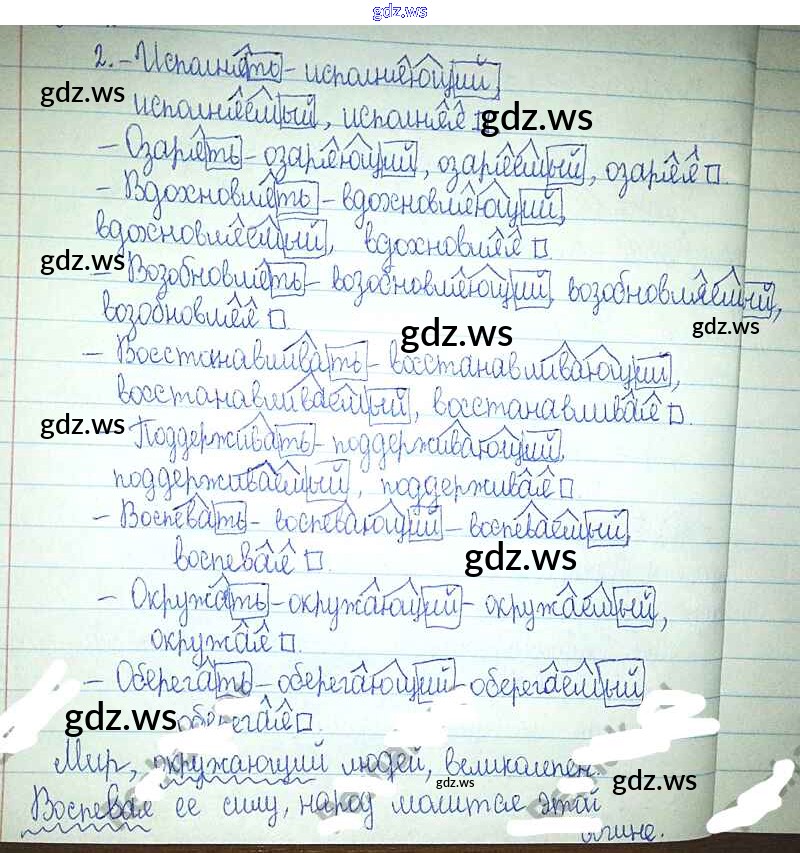 gdz.ws
2. – Исполнять – исполняющий,
gdz.ws
исполняемый, исполняя
gdz.ws
– Озарять – озаряющий, озаряемый, озаряя.
– Вдохновлять – вдохновляющий,
вдохновляемый, вдохновляя.
gdz.ws
– Возобновлять – возобновляющий, возобновляемый,
возобновляя.
gdz.ws
gdz.ws
– Восстанавливать – восстанавливающий,
восстанавливаемый, восстанавливая.
gdz.ws
Поддерживать – поддерживающий,
поддерживаемый, поддерживая.
– Воспевать – воспевающий – воспеваемый,
воспевая.
gdz.ws
– Окружать – окружающий – окружаемый,
окружая.
– Оберегать – оберегающий – оберегаемый
оберегая.
gdz.ws
Мир, окружающий людей, великолепен.
gdz.ws
gdz.ws
Воспевая ее силу, народ молится этой